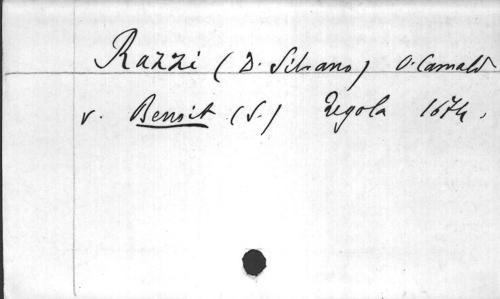 Razzi (D. Silvano) O. Camald
v. Benoit (S.) Regola 1674.